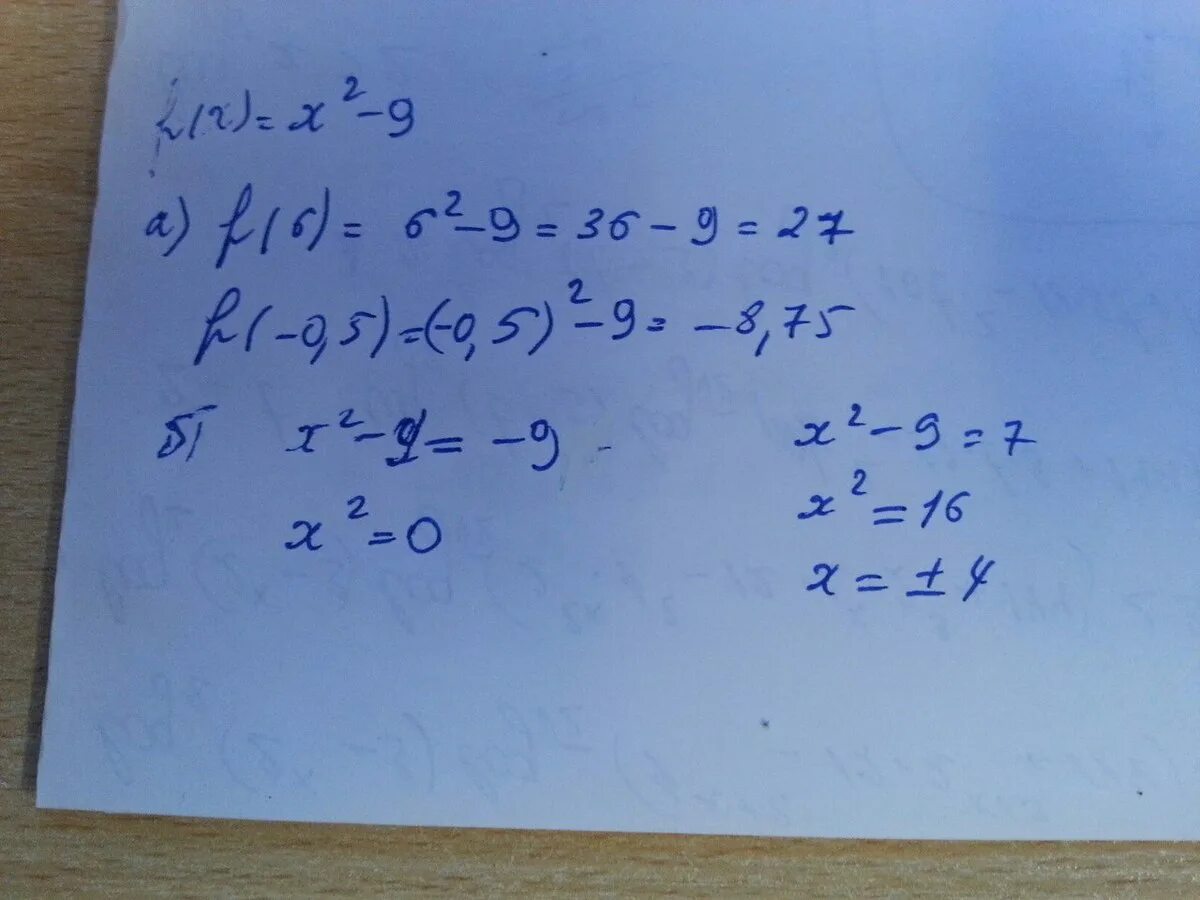 f(x) = x² - 9
а) f(6) = 6² - 9 = 36 - 9 = 27
f(-0,5) = (-0,5)² - 9 = -8,75
б) x² - 9 = -9
x² = 0
x² - 9 = 7
x² = 16
x = ± 4